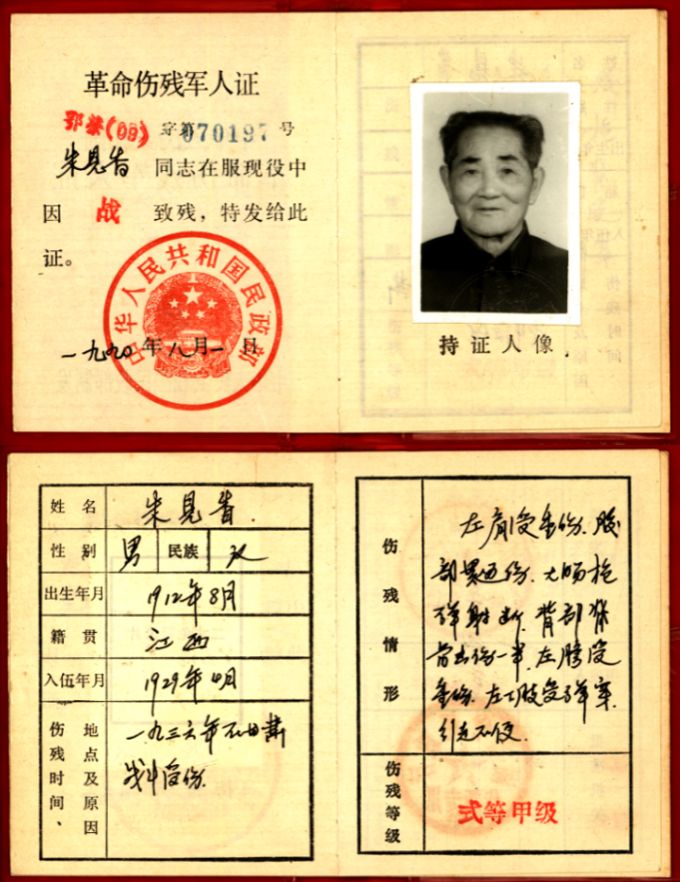 革命伤残军人证
鄂字第070197号
朱见香 同志在服现役中
因 战 致残，特发给此
证。
中华人民共和国民政部
一九九0年八月一日
持证人像
姓名 朱见香
性别 男 民族 汉
出生年月 1912年8月
籍贯 江西
入伍年月 1929年4月
伤残时间、地点及原因 一九三六年在甘肃
战斗负伤.
伤残情形 左肩受重伤.腹
部贯通伤.大肠枪
弹射断.背部脊
骨击伤一半.左膀受
重伤.左下肢受弹穿.
行走不便.
伤残等级 弍等甲级